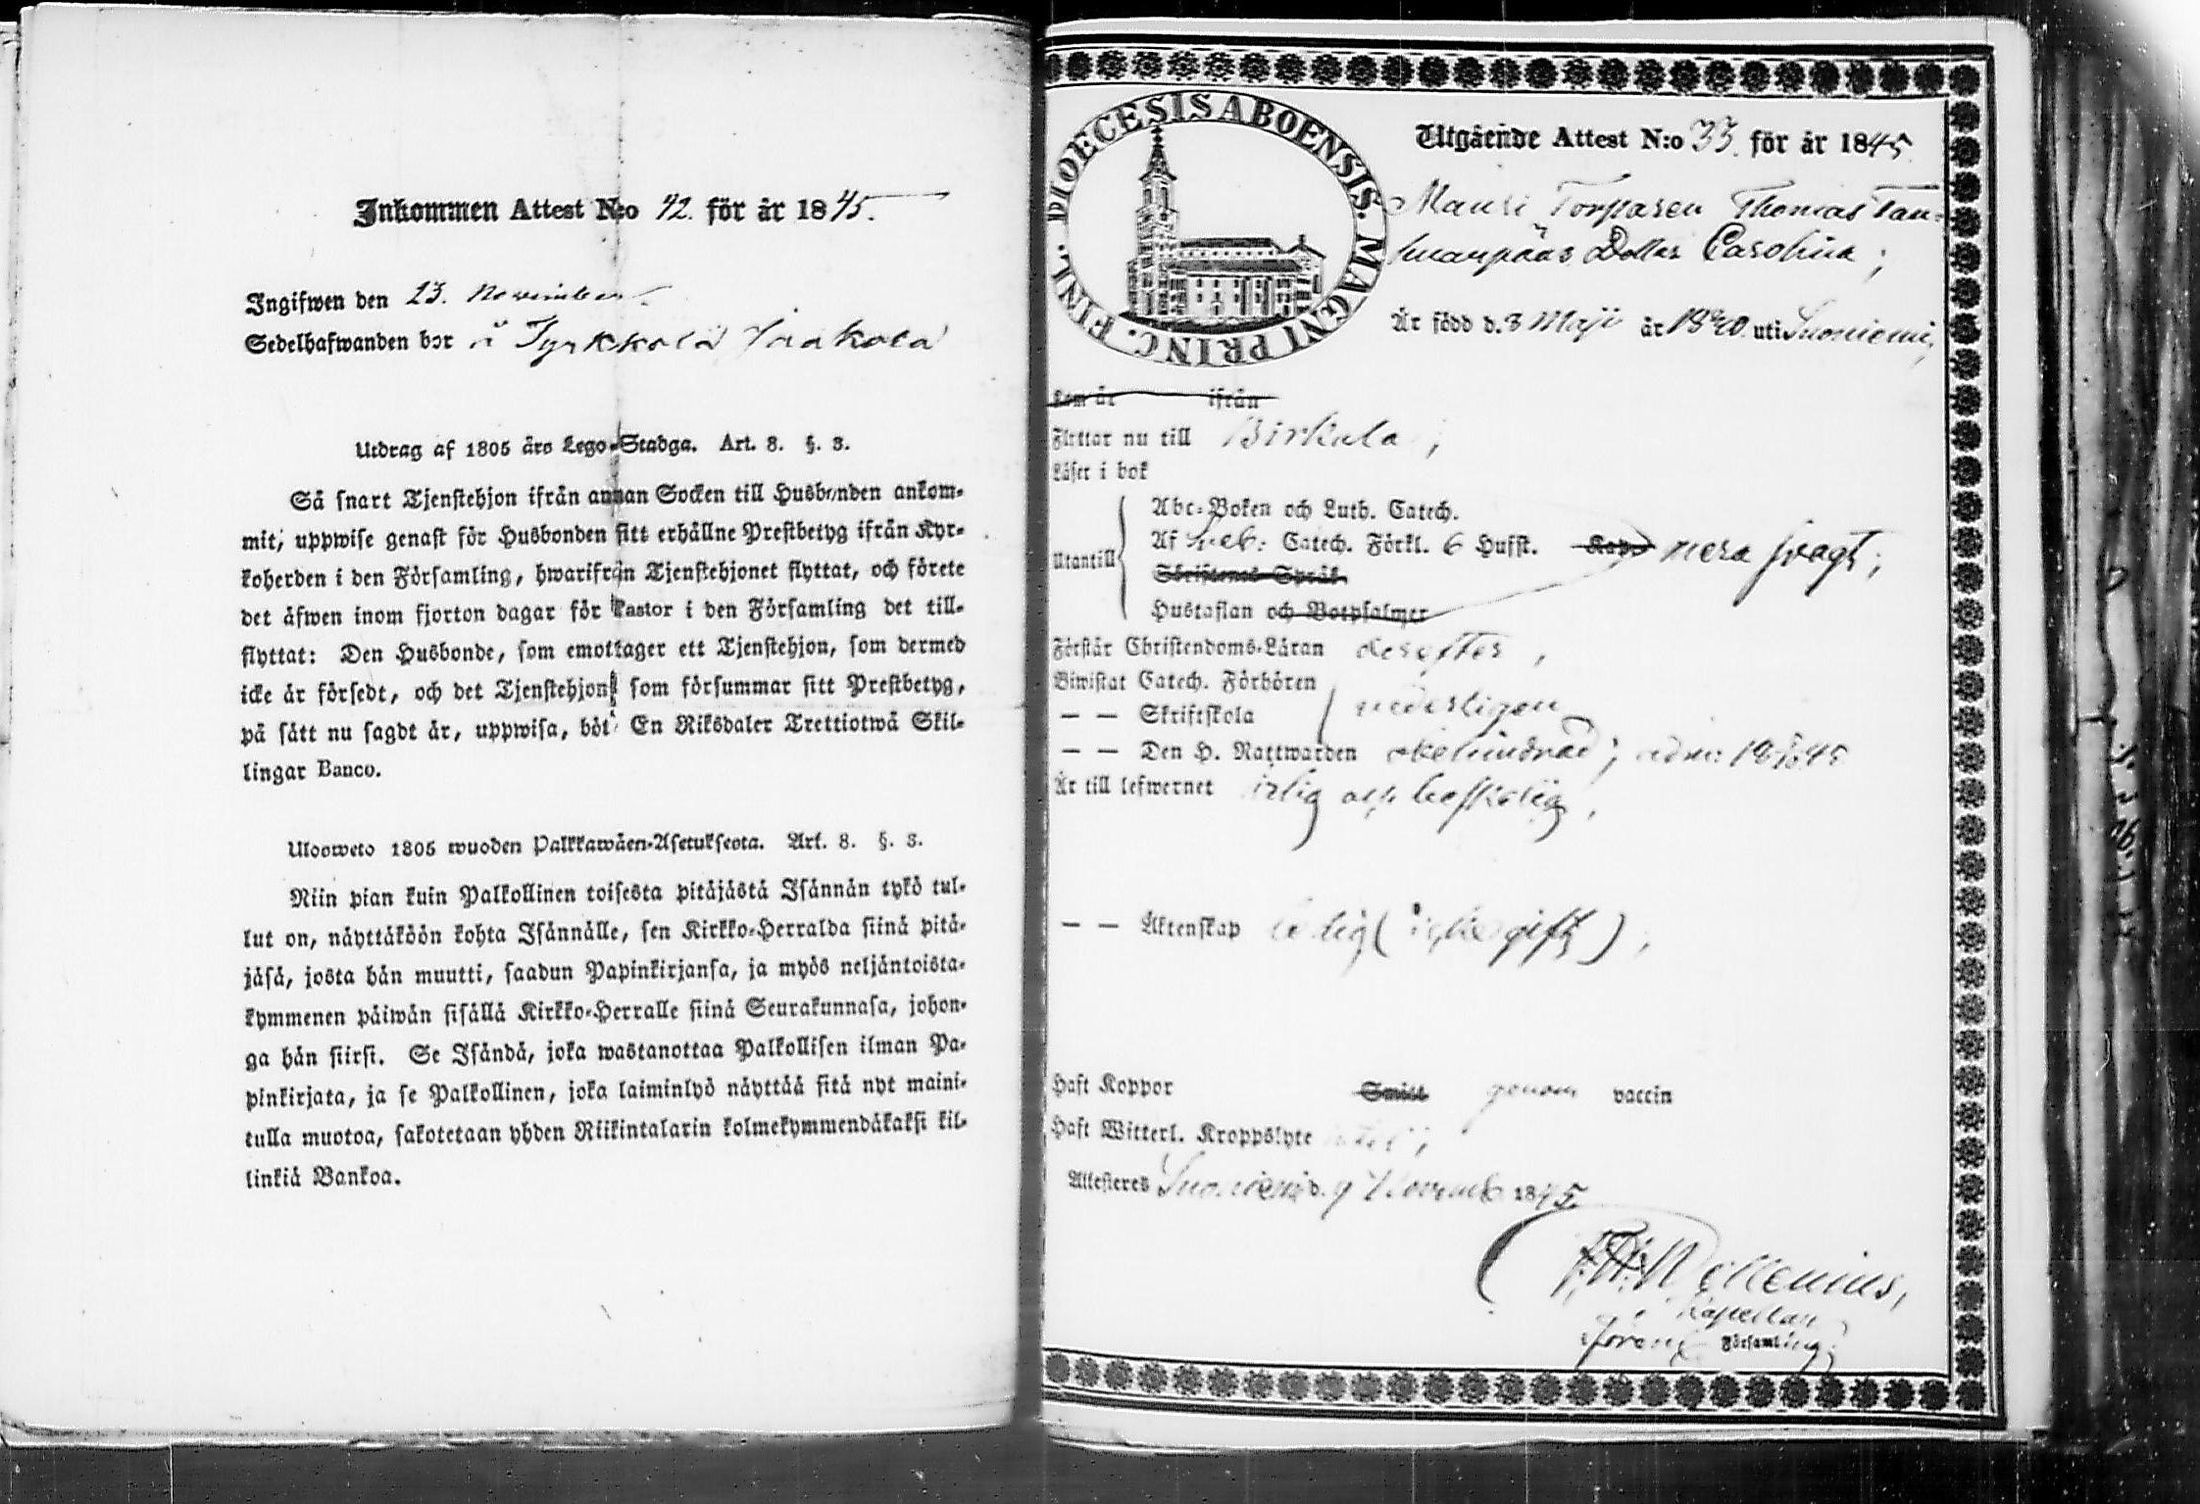 Inkommen Attest N:o 42. för år 1845.
Ingifwen den 23. November.
Sedelhafwanden bor å Tyrkkölä Jaakola
Utdrag af 1805 års Lego-Stadga. Art. 8. §. 3.
Så snart Tjenstehjon ifrån annan Socken till Husbonden ankom-
mit, uppwise genast för Husbonden sitt erhållne Prestbetyg ifrån Kyr-
koherden i den Församling, hwarifrån Tjenstehjonet flyttat, och förete
det äfwen inom fjorton dagar för Pastor i den Församling det till-
flyttat: Den Husbonde, som emottager ett Tjenstehjon, som dermed
icke är försedt, och det Tjenstehjon, som försummar sitt Prestbetyg,
på sätt nu sagdt är, uppwisa, böte En Riksdaler Trettiotwå Skil-
lingar Banco.
Ulosweto 1805 wuoden Palkkawäen-Asetuksesta. Art. 8. §. 3.
Niin pian kuin Palkollinen toisesta pitäjästä Isännän tykö tul-
lut on, näyttäköön kohta Isännälle, sen Kirkko-Herralda siinä pitä-
jäsä, josta hän muutti, saadun Papinkirjansa, ja myös neljäntoista-
kymmenen päiwän sisällä Kirkko-Herralle siinä Seurakunnasa, johon-
ga hän siirsi. Se Isändä, joka wastanottaa Palkollisen ilman Pa-
pinkirjata, ja se Palkollinen, joka laiminlyö näyttää sitä nyt maini-
tulla muotoa, sakotetaan yhden Riikintalarin kolmekymmendäkaksi kil-
linkiä Bankoa.
DIOECESIS ABOENSIS. MAGNI PRINC. FINL.
Utgående Attest N:o 33. för år 1845.
Mauri Torparen Thomas
Dotter Carolina;
Är född d. 3 Maji år 1820 uti Suoniemi;
kom år ifrån
Flyttar nu till Birkala;
Läser i bok
Utantill
Abc-Boken och Luth. Catech.
Af Sveb: Catech. Förkl. 6 Hufst. Kapp nera svagt;
Skriftenes Språk.
Hustaflan och Botpsalmer
Förstår Christendoms-Läran derefter,
Biwistat Catech. Förhören
— — Skriftskola
— — Den H. Nattwarden oklandrad; adm:
Är till lefwernet ärlig och beskedlig,
— — Äktenskap ledig (icke gift),
Haft Koppor Smitt genom vaccin
Haft Witterl. Kroppslyte
Attesteres Suoniemi d. 9 Novemb 1845.
Kapellan
Församling;